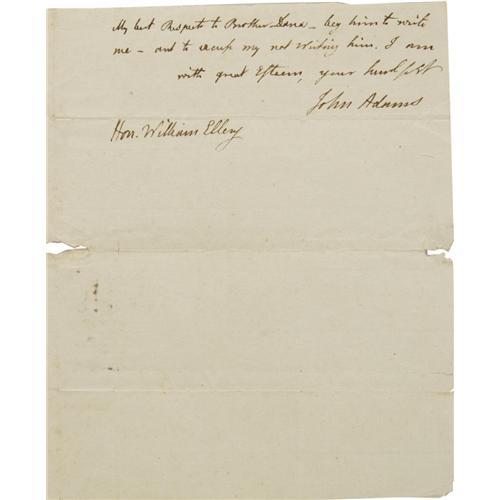 My best Respects to Brother Dana — beg him to write
me — and to excuse my not writing him. I am
with great Esteem, your humb
John Adams
Hon. William Ellery